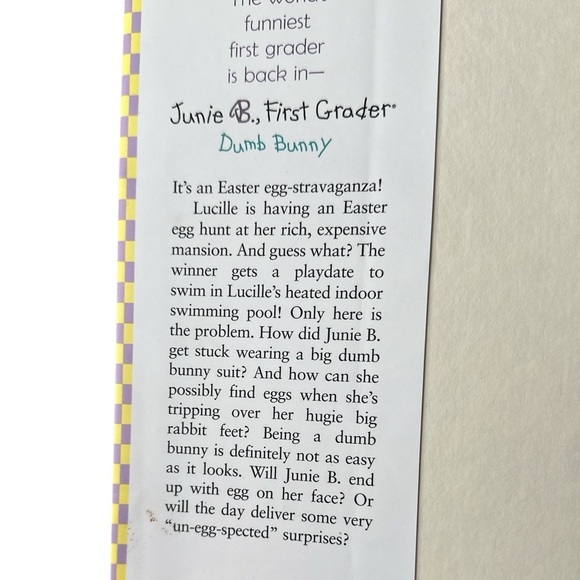 The world's
funniest
first grader
is back in—
Junie B., First Grader
Dumb Bunny
It's an Easter egg-stravaganza!
Lucille is having an Easter
egg hunt at her rich, expensive
mansion. And guess what? The
winner gets a playdate to
swim in Lucille's heated indoor
swimming pool! Only here is
the problem. How did Junie B.
get stuck wearing a big dumb
bunny suit? And how can she
possibly find eggs when she's
tripping over her hugie big
rabbit feet? Being a dumb
bunny is definitely not as easy
as it looks. Will Junie B. end
up with egg on her face? Or
will the day deliver some very
“un-egg-spected” surprises?